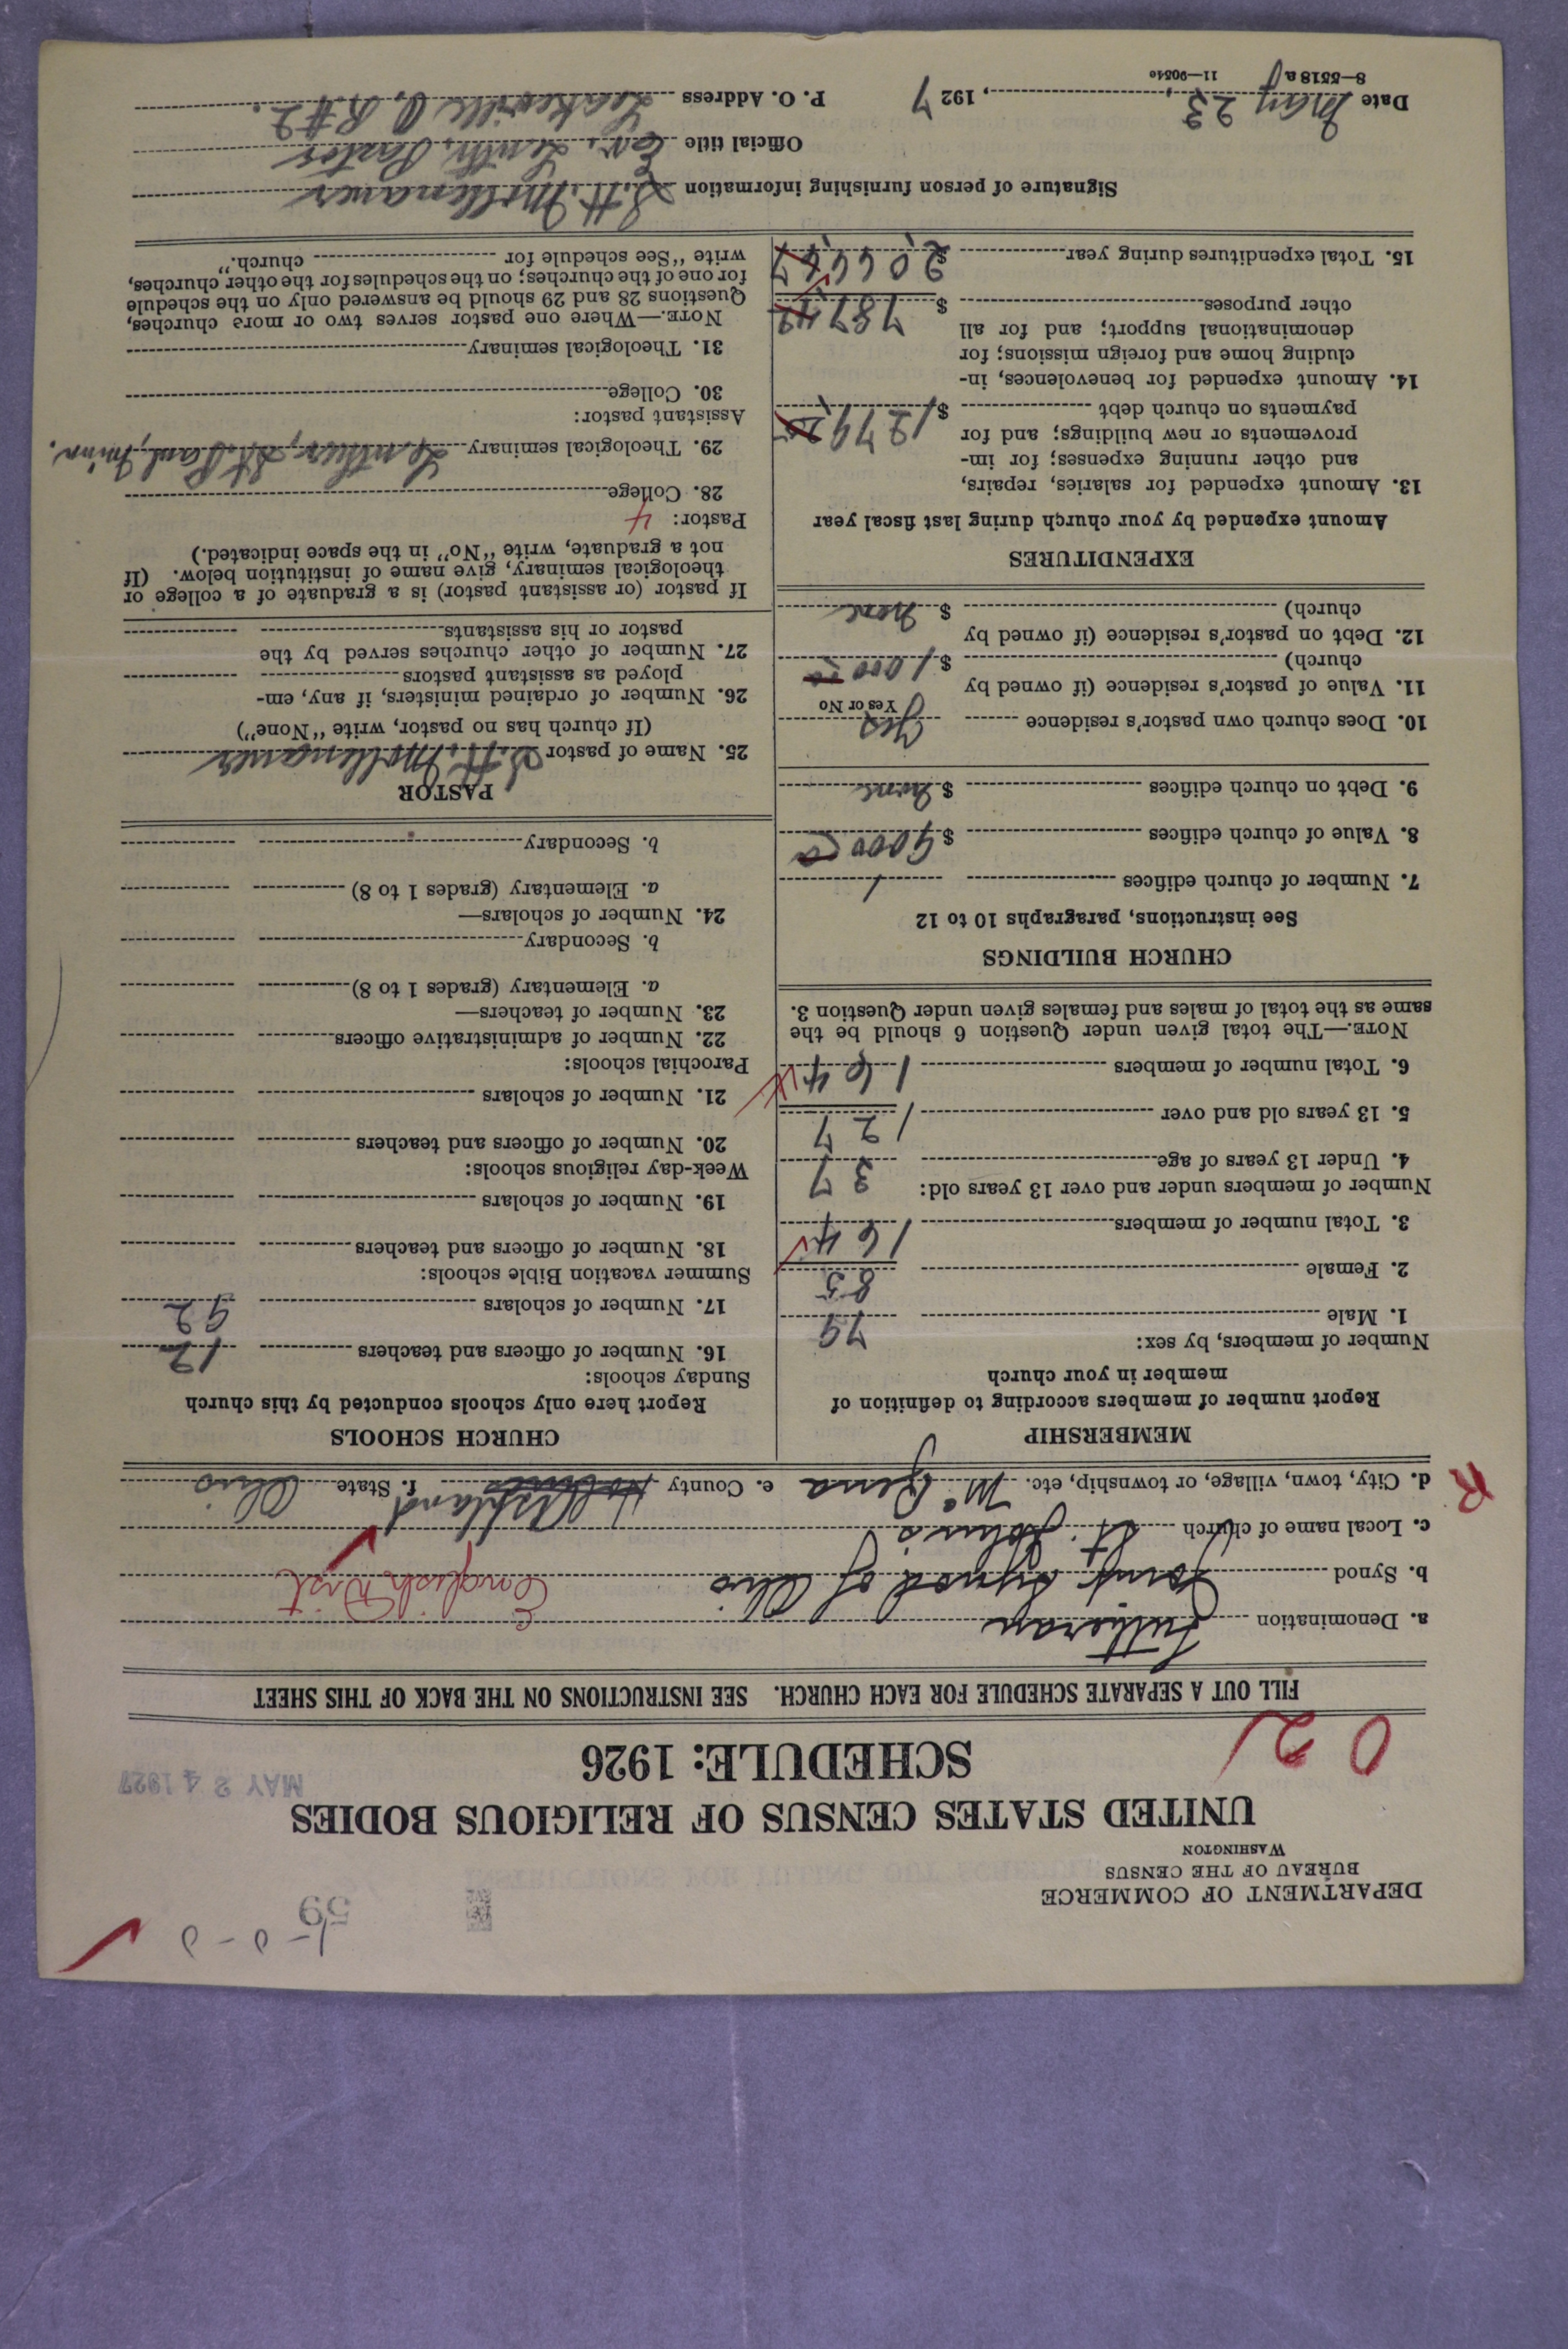 1-0-0
59
DEPARTMENT OF COMMERCE
BUREAU OF THE CENSUS
WASHINGTON
UNITED STATES CENSUS OF RELIGIOUS BODIES
SCHEDULE: 1926
MAY 24 1927
02
FILL OUT A SEPARATE SCHEDULE FOR EACH CHURCH. SEE INSTRUCTIONS ON THE BACK OF THIS SHEET
a. Denomination Lutheran
b. Synod Joint Synod of Ohio English Dist
c. Local name of church St. John's
R
d. City, town, village, or township, etc. McZena e. County Ashland f. State Ohio
MEMBERSHIP
Report number of members according to definition of
member in your church
Number of members, by sex:
1. Male 79
2. Female 85
3. Total number of members 164
Number of members under and over 13 years old:
4. Under 13 years of age 37
5. 13 years old and over 127
6. Total number of members 164
NOTE.—The total given under Question 6 should be the
same as the total of males and females given under Question 3.
CHURCH BUILDINGS
See instructions, paragraphs 10 to 12
7. Number of church edifices 1
8. Value of church edifices $ 9000 00
9. Debt on church edifices $ none
10. Does church own pastor's residence Yes
Yes or No
11. Value of pastor's residence (if owned by
church) $ 1000 00
12. Debt on pastor's residence (if owned by
church) $ none
EXPENDITURES
Amount expended by your church during last fiscal year
13. Amount expended for salaries, repairs,
and other running expenses; for im-
provements or new buildings; and for
payments on church debt $ 1279
14. Amount expended for benevolences, in-
cluding home and foreign missions; for
denominational support; and for all
other purposes $ 787
15. Total expenditures during year $ 2066
CHURCH SCHOOLS
Report here only schools conducted by this church
Sunday schools:
16. Number of officers and teachers 12
17. Number of scholars 92
Summer vacation Bible schools:
18. Number of officers and teachers
19. Number of scholars
Week-day religious schools:
20. Number of officers and teachers
21. Number of scholars
Parochial schools:
22. Number of administrative officers
23. Number of teachers—
a. Elementary (grades 1 to 8)
b. Secondary
24. Number of scholars—
a. Elementary (grades 1 to 8)
b. Secondary
PASTOR
25. Name of pastor S. H. Mollenauer
(If church has no pastor, write "None")
26. Number of ordained ministers, if any, em-
ployed as assistant pastors
27. Number of other churches served by the
pastor or his assistants
If pastor (or assistant pastor) is a graduate of a college or
theological seminary, give name of institution below. (If
not a graduate, write "No" in the space indicated.)
Pastor: 4
28. College
29. Theological seminary Luther, St. Paul, Minn.
Assistant pastor:
30. College
31. Theological seminary
NOTE.—Where one pastor serves two or more churches,
Questions 28 and 29 should be answered only on the schedule
for one of the churches; on the schedules for the other churches,
write "See schedule for church."
Signature of person furnishing information S. H. Mollenauer
Official title Ev. Luth. Pastor
Date May 23, 1927 P. O. Address Lakeville O. R #2.
8—5518 a 11—9054e